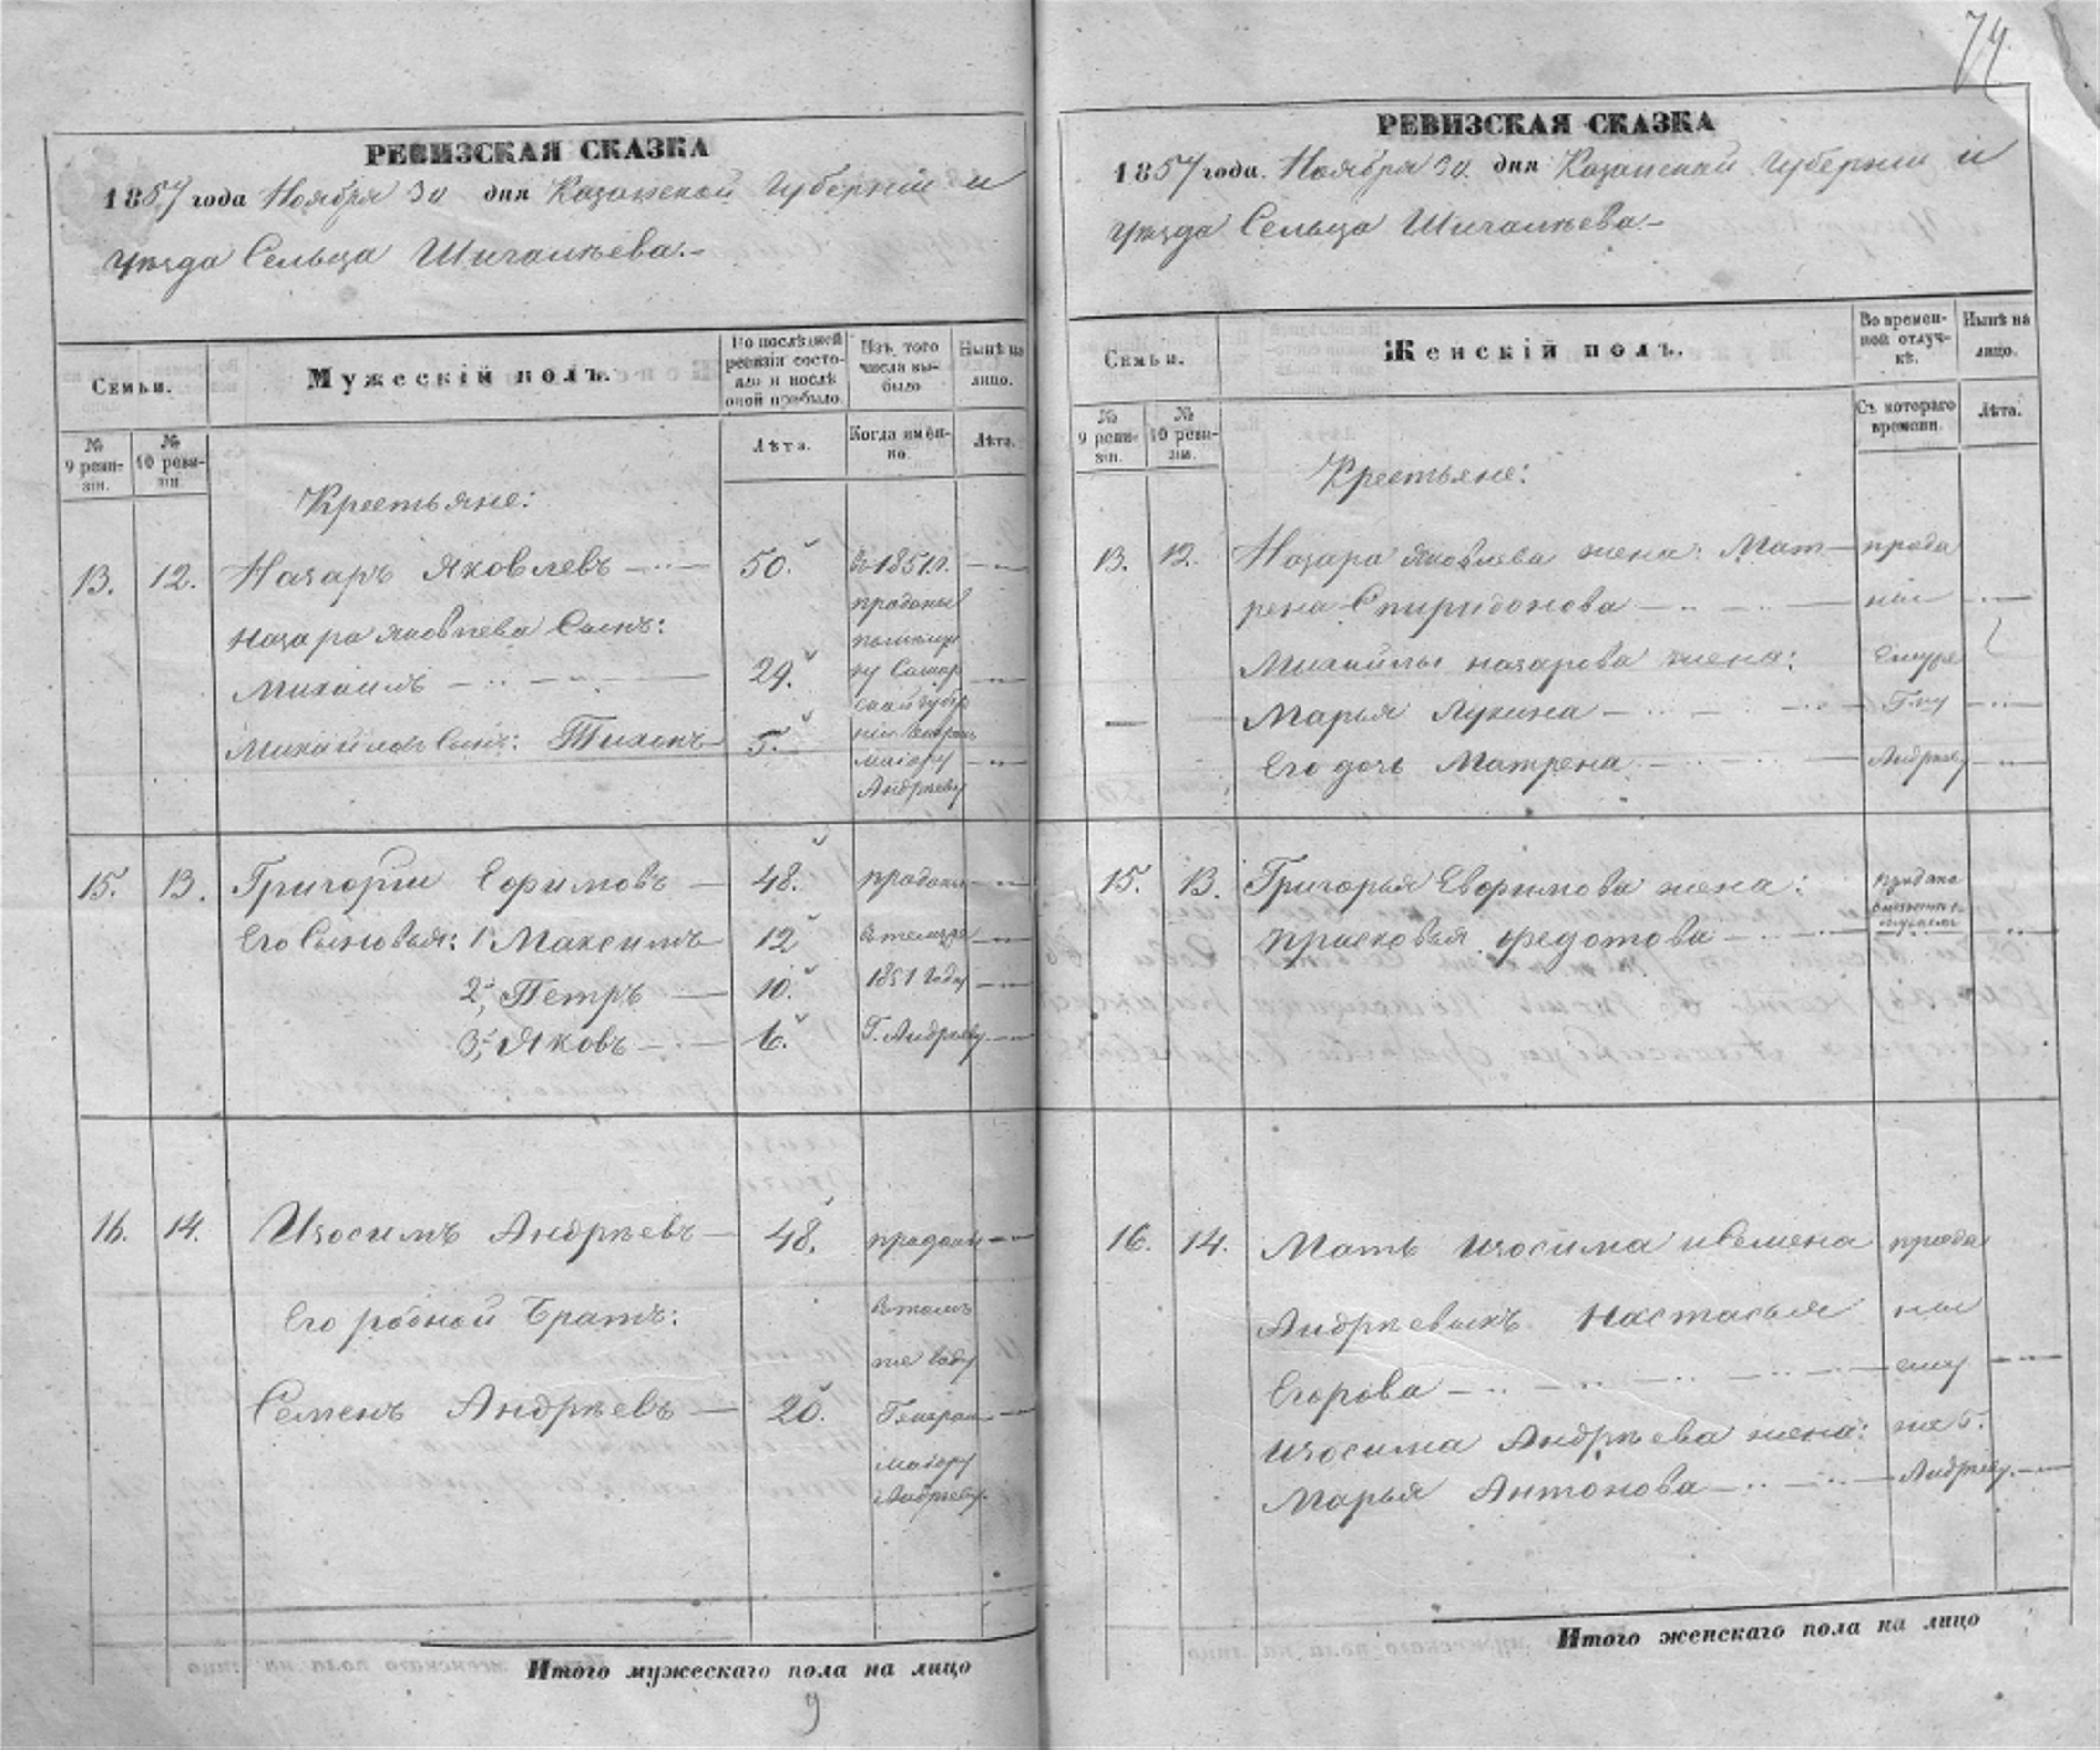 74
РЕВИЗСКАЯ СКАЗКА
1857 года Ноября 30 дня Казанской Губерніи и
уѣзда Сельца Шигалѣева.
Семьи.
Мужескій полъ.
По послѣдней ревизіи состояло и послѣ оной прибыло.
Изъ того числа выбыло
Нынѣ на лицо.
№ 9 ревизіи.
№ 10 ревизіи.
Лѣта.
Когда именно.
Лѣта.
Крестьяне:
13. 12. Назаръ Яковлевъ 50. въ 1851 г.
проданы
Назара Яковлева Сынъ:
Михаилъ 29.
Михайловъ Сынъ: Тихонъ 5.
маіору
Андрѣеву
15. 13. Григорий Ефимовъ 48. проданы
Его Сыновья: 1 Максимъ 12 въ томъ же
2, Петръ 10. 1851 году
3, Яковъ 6. Г. Андрѣеву
16. 14. Изосимъ Андрѣевъ 48. проданы
Его родной Братъ: въ томъ
же году
Семенъ Андрѣевъ 20. Генералъ
маіору
Андрѣеву.
Итого мужескаго пола на лицо
9
РЕВИЗСКАЯ СКАЗКА
1857 года. Ноября 30. дня Казанской Губерніи и
уѣзда Сельца Шигалѣева
Семьи.
Женскій полъ.
Во временной отлучкѣ.
Нынѣ на лицо.
№ 9 ревизіи.
№ 10 ревизіи.
Съ котораго времени.
Лѣта.
Крестьяне:
13. 12. Назара Яковлева жена: Мат- прода
рена Спиридонова ны
Михайлы Назарова жена:
Марья Лукина Г-ну
Его дочь Матрена Андрѣеву
15. 13. Григорья Евфимова жена: продана
Прасковья Федотова вмѣстѣ с мужемъ
16. 14. Мать Изосима и Семена прода
Андрѣевыхъ Настасья ны
Егорова ему
Изосима Андрѣева жена: же Г.
Марья Антонова Андрѣеву.
Итого женскаго пола на лицо